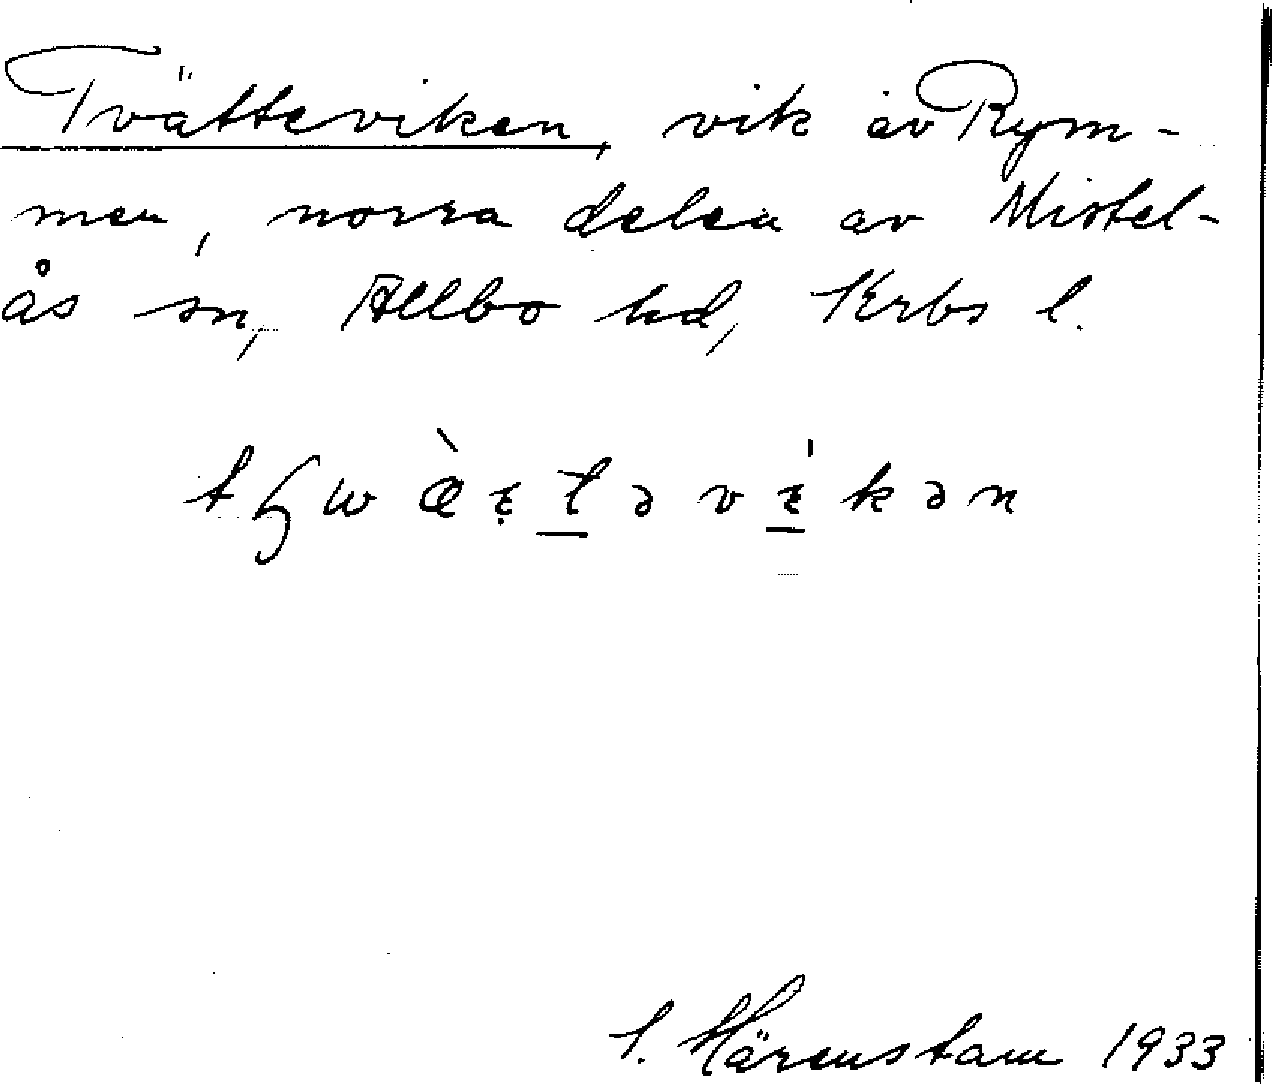 Tvätteviken, vik av Rym-
men, norra delen av Mistel-
ås sn, Allbo hd, Krbs l.
S. Härenstam 1933